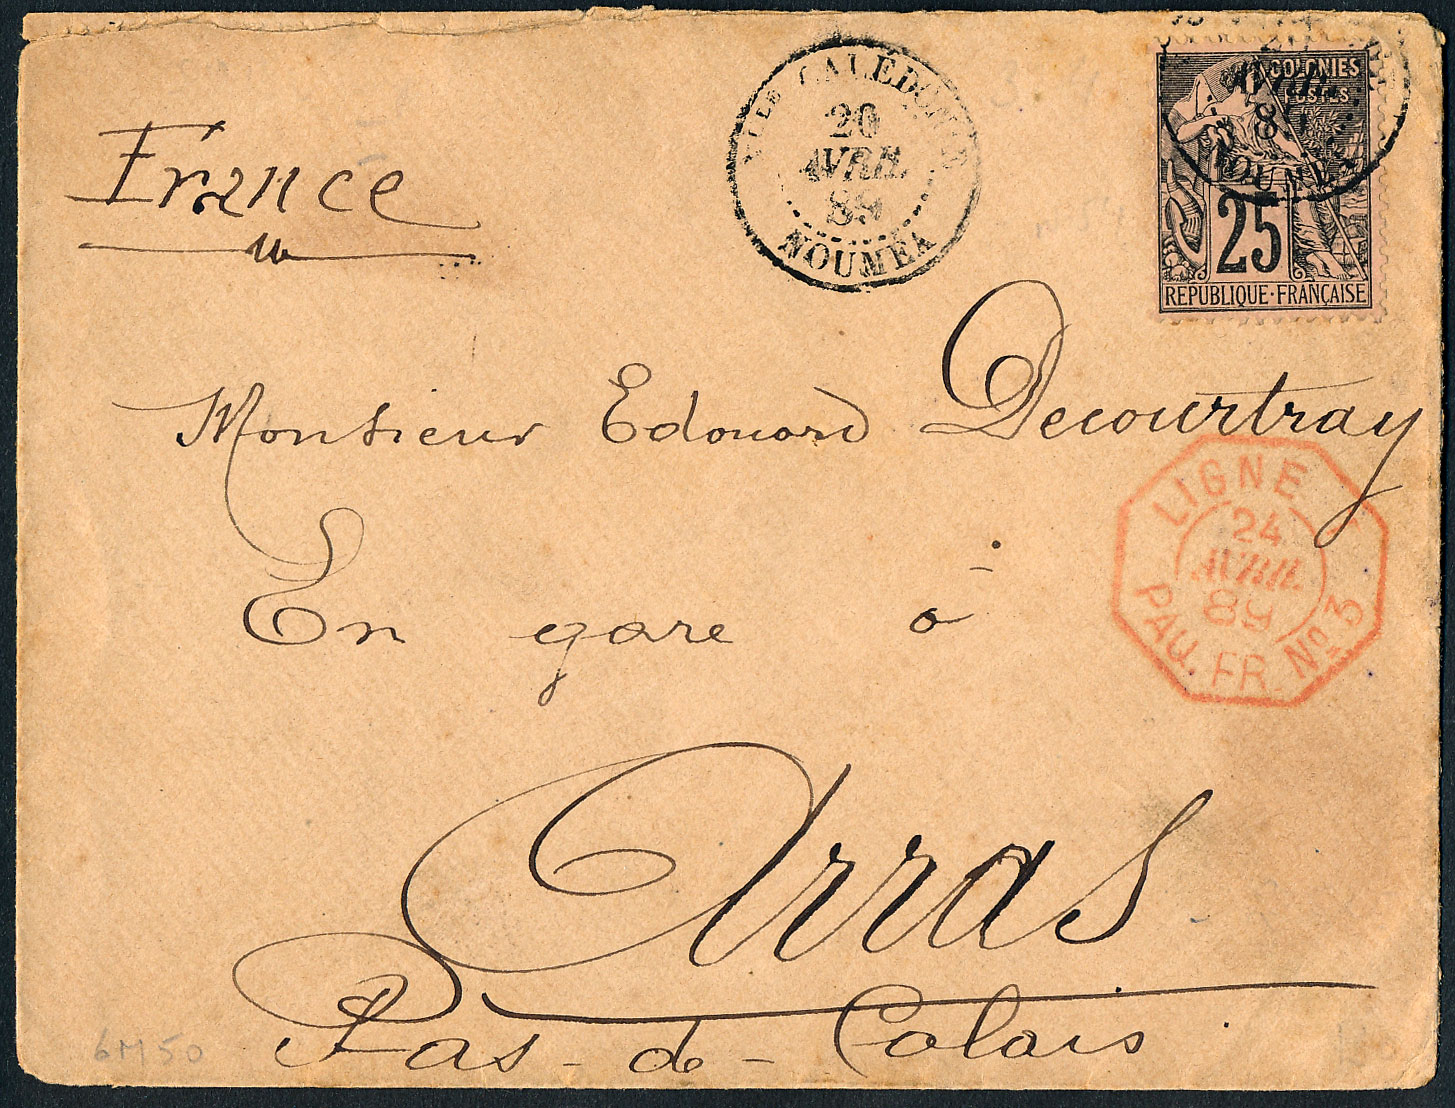 Nlle CALÉDONIE
20
AVRIL
89
NOUMEA
COLONIES
POSTES
AVRIL
NOUMEA
25
REPUBLIQUE·FRANÇAISE
France
Monsieur Edouard Decourtray
LIGNE
24
AVRIL
89
PAQ. FR. No 3
En gare à
Arras
Pas-de-Calais
6M50